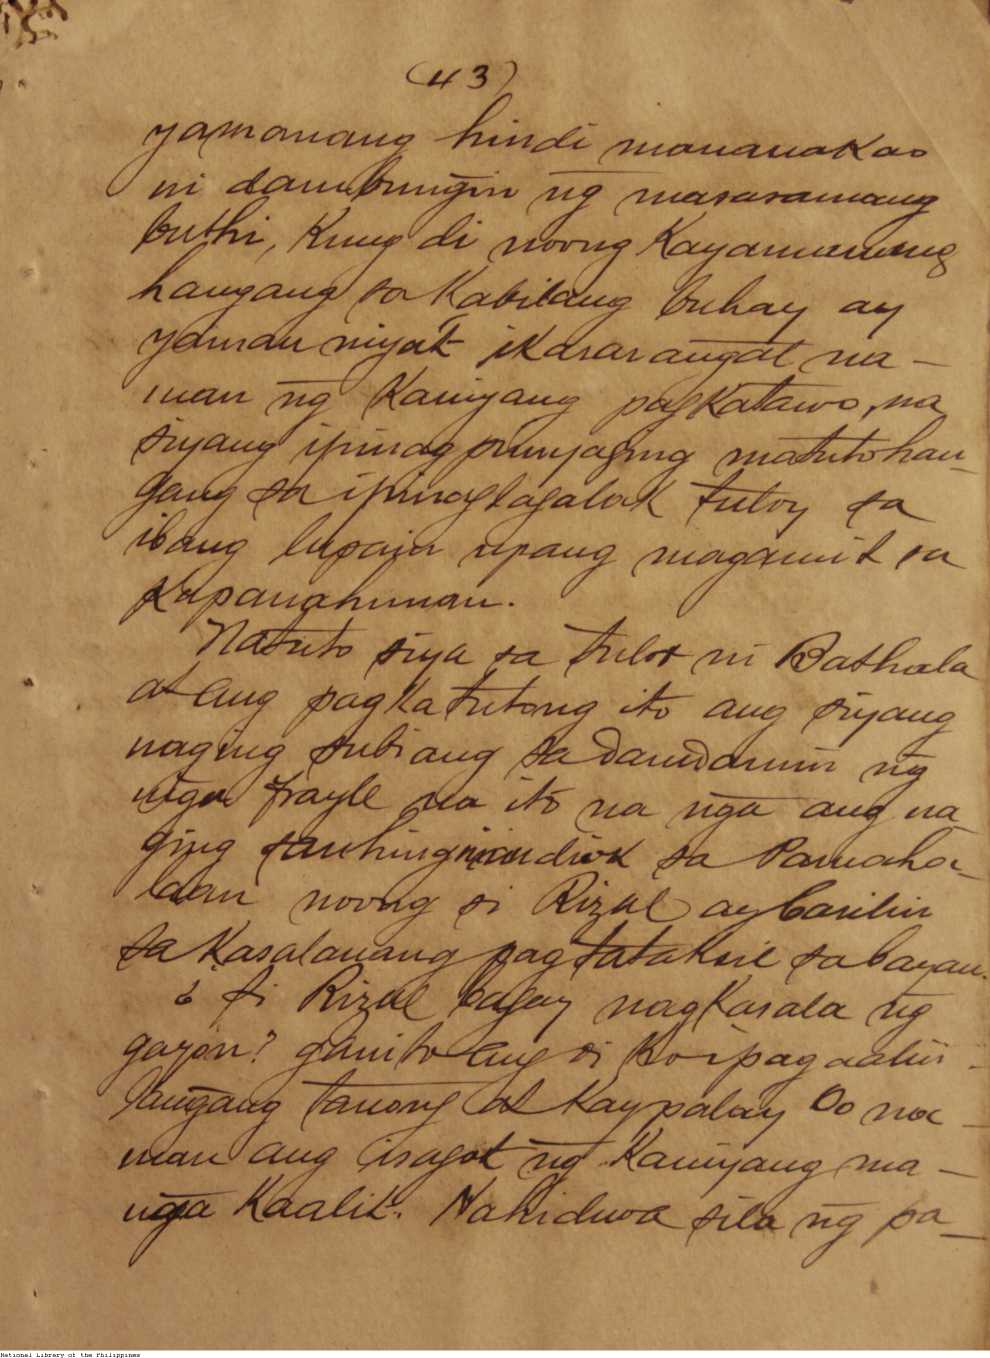 (43)
yamanang hindi mananakao
ni dambungin n̄g masasamang
buthi, kung di noong kayamanang
hangang sa kabilang buhay ay
yaman niya't ikasasan̄gat na-
man n̄g kaniyang pagkatawo, na
siyang ipinag punyaging matuto han-
gang sa ipinaglagalak tuloy sa
ibang lupain upang magamit sa
kapanahunan.
Natuto siya sa tulor ni Bathala
at ang pagkatutong ito ang siyang
naging subiang sa damdamin n̄g
mga frayle na ito na n̄ga ang na
ging sa Pamaha-
laan noong si Rizal ay barilin
sa kasalanang pagtataksil sa bayan.
¿ Si Rizal bagay nagkasala n̄g
gayon? ganito ang di ko ipag aalin-
lan̄gang tanong at kaypalay Oo na-
man ang isagot n̄g kaniyang ma-
n̄ga kaalit. Nahidwa sila n̄g pa-
National Library of the Philippines